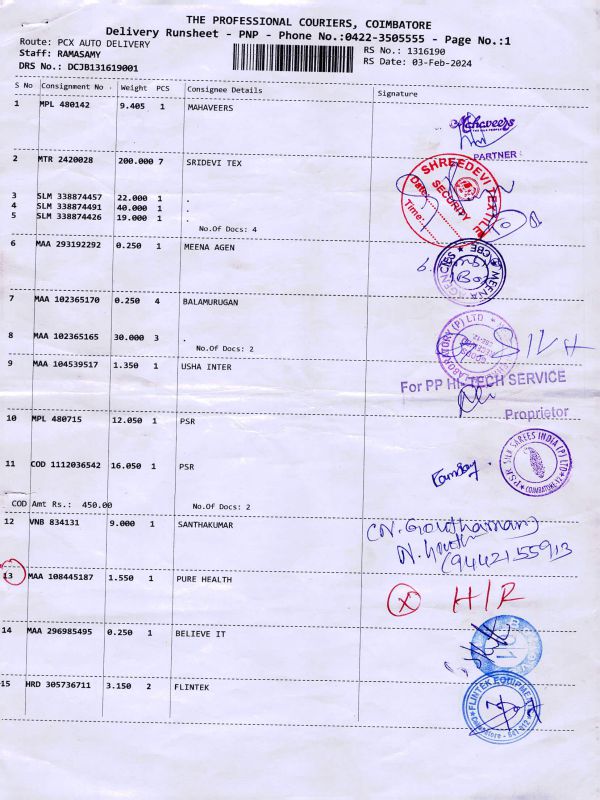 THE PROFESSIONAL COURIERS, COIMBATORE
Delivery Runsheet - PNP - Phone No.:0422-3505555 - Page No.:1
Route: PCX AUTO DELIVERY
RS No.: 1316190
Staff: RAMASAMY
RS Date: 03-Feb-2024
DRS No.: DCJB131619001
S No Consignment No Weight PCS Consignee Details Signature
1 MPL 480142 9.405 1 MAHAVEERS
Mahaveers
PARTNER
2 MTR 2420028 200.000 7 SRIDEVI TEX
SHREEDEVI TEXTILE
SECURITY
Date:
Time:
3 SLM 338874457 22.000 1 .
4 SLM 338874491 40.000 1 .
5 SLM 338874426 19.000 1 .
No.Of Docs: 4
6 MAA 293192292 0.250 1 MEENA AGEN
MEENA AGENCIES * CBE *
7 MAA 102365170 0.250 4 BALAMURUGAN
8 MAA 102365165 30.000 3 .
No.Of Docs: 2
LABORATORY (P) LTD
9 MAA 104539517 1.350 1 USHA INTER
For PP HI-TECH SERVICE
Proprietor
10 MPL 480715 12.050 1 PSR
11 COD 1112036542 16.050 1 PSR
P.S.R. SILK SAREES INDIA (P) LTD
COD Amt Rs.: 450.00
No.Of Docs: 2
12 VNB 834131 9.000 1 SANTHAKUMAR
(N. Gouthaman)
(9442155913
13 MAA 108445187 1.550 1 PURE HEALTH
X H/R
14 MAA 296985495 0.250 1 BELIEVE IT
15 HRD 305736711 3.150 2 FLINTEK
FLINTEK EQUIPMENT
Coimbatore - 641 012